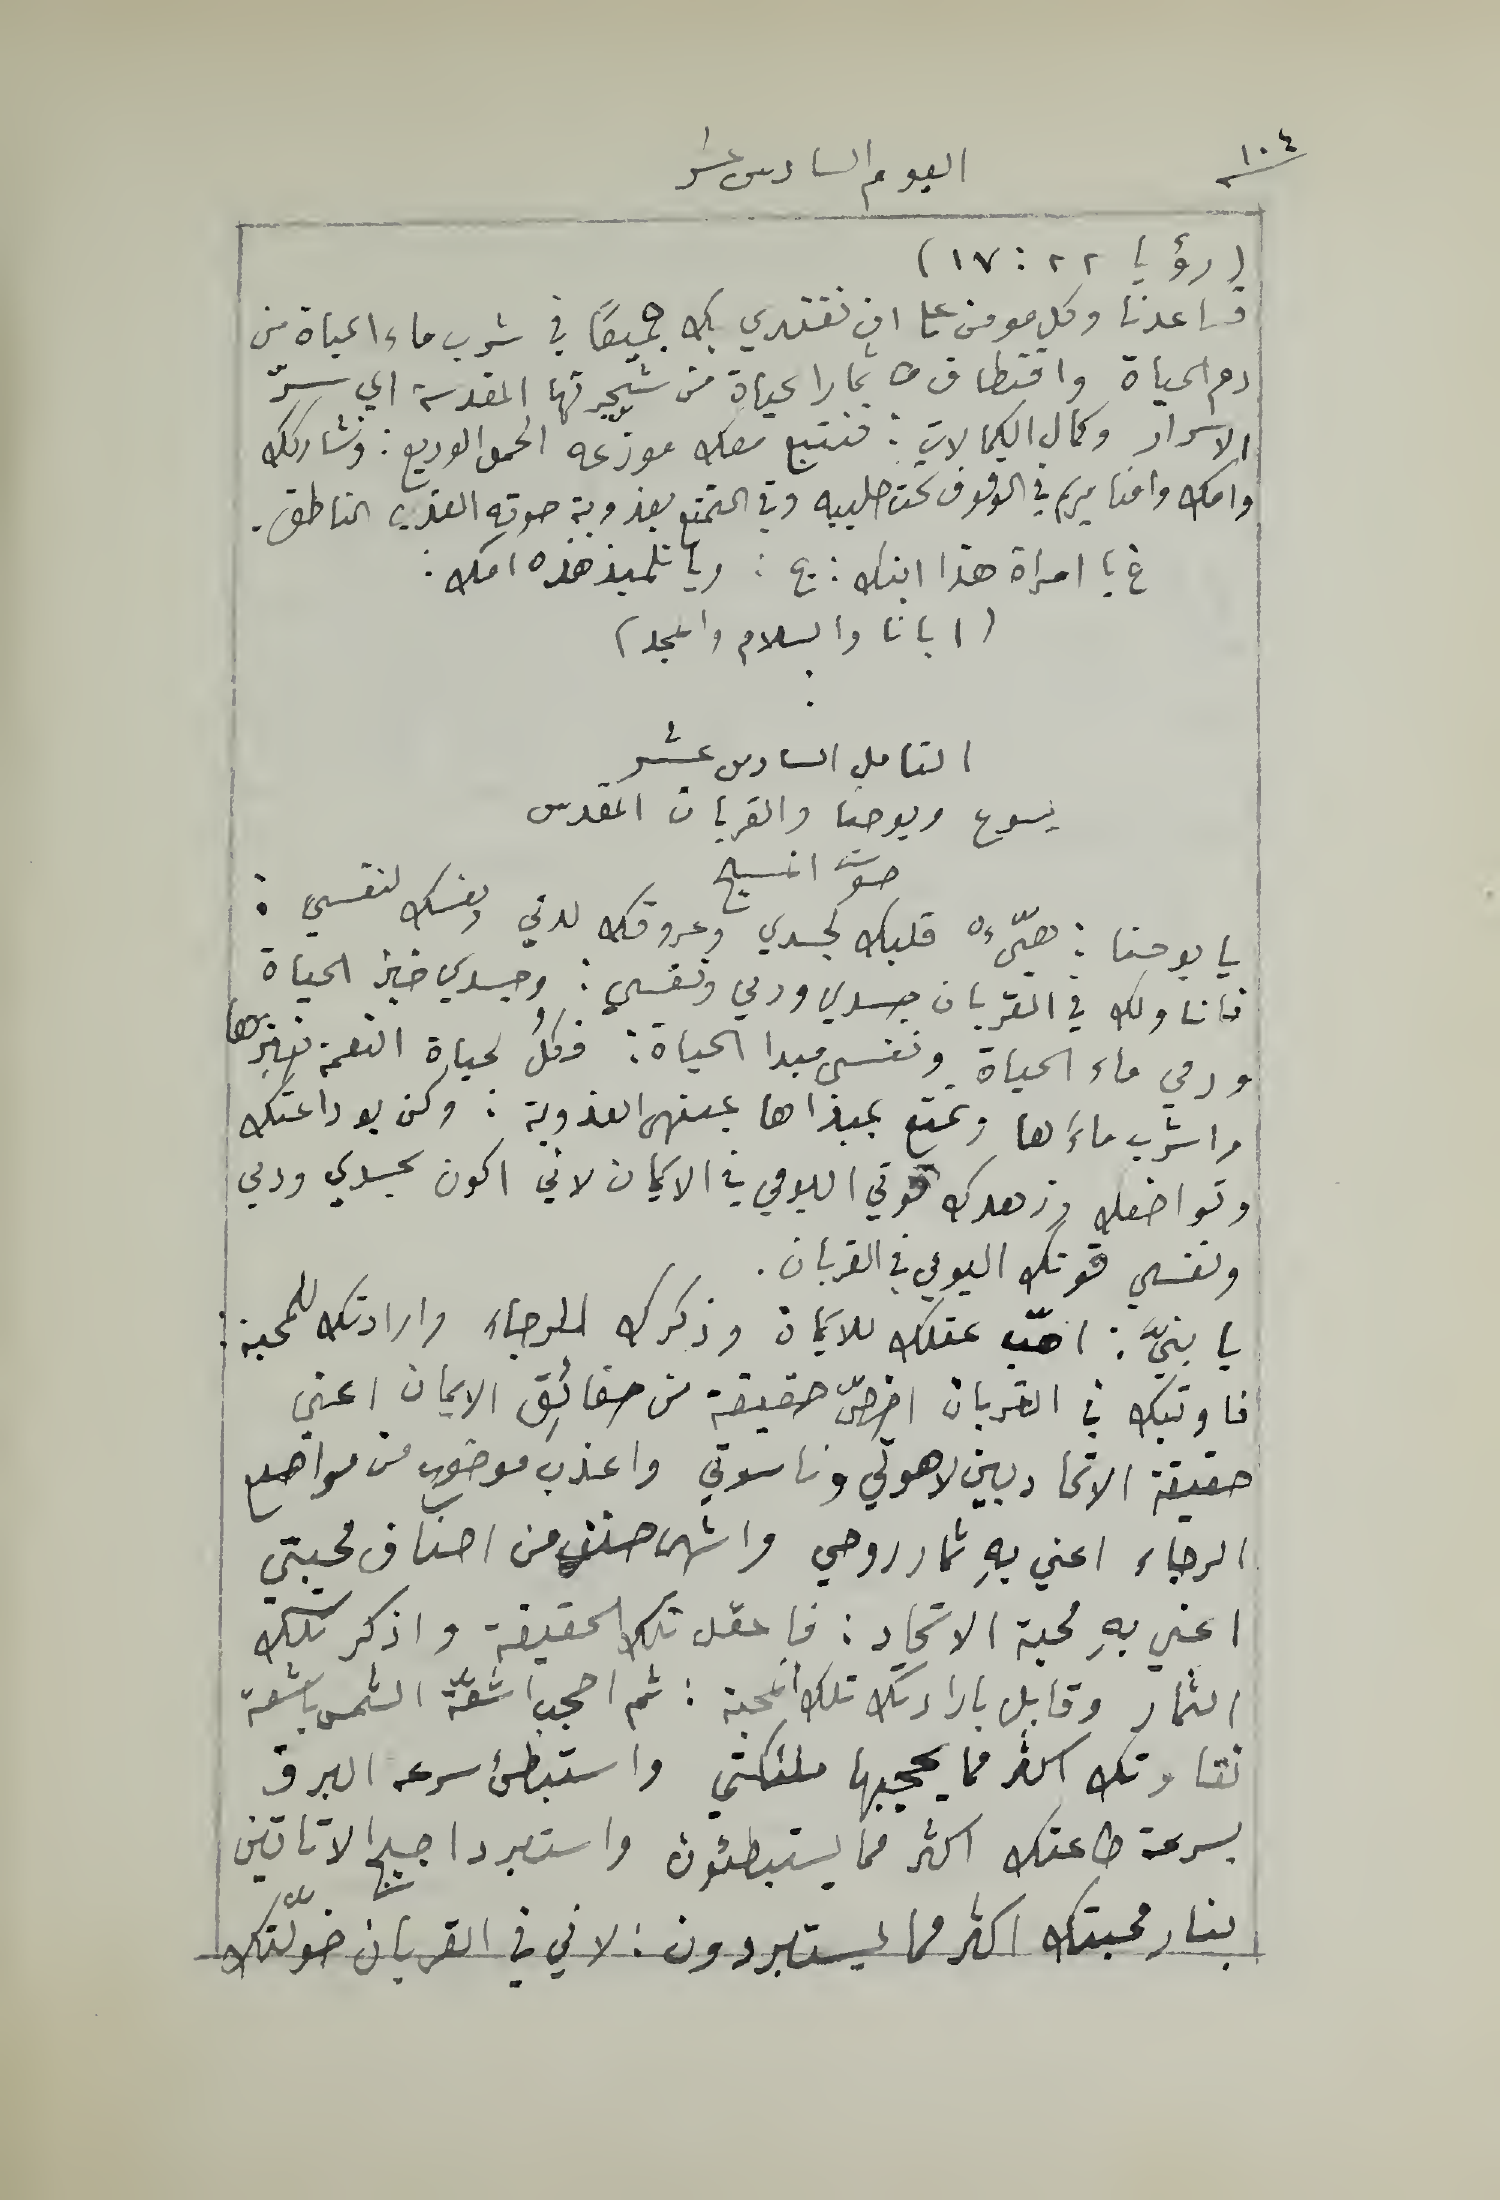 ١٠٤
اليوم السادس عشر
(رؤيا ٢٢ : ١٧)
فساعدنا وكل مومن على ان نقتدي بك جميعًا في شرب ماء الحياة من
دم الحياة واقتطاف ثمار الحياة من شجرتها المقدسة اي سرّ
الاسرار وكمال الكمالات : فنتبع معك موزعه الحمل الوديع : ونشاركك
وامك وامنا مريم في الوقوف تحت صليبه وفي التمتع بعذوبة صوته العذب الناطق .
غ يا امراة هذا ابنك : ع : ويا تلميذ هذه امك :
(ابانا والسلام والمجد)
التامل السادس عشر
يسوع ويوحنا والقربان المقدس
صوت المسيح
يا يوحنا : هيّء قلبك لجسدي وعروقك لدمي ونفسك لنفسي :
فاناولك في القربان جسدي ودمي ونفسي : وجسدي خبز الحياة
ودمي ماء الحياة ونفسي مبدا الحياة : فكل لحياة النعمة خبزها
واشرب ماءَها وتمتع بمبداها بمنتهى العذوبة : وكن بوداعتك
وتواضعك وزهدك قوتي اليومي في الايمان لاني اكون بجسدي ودمي
ونفسي قوتك اليومي في القربان .
يا بنيَّ : اهب عقلك للايمان وذكرك للرجاء وارادتك للمحبة :
فاوتيك في القربان اخصّ حقيقة من حقائق الايمان اعني
حقيقة الاتحاد بين لاهوتي وناسوتي واعذب موضوع من مواضيع
الرجاء اعني بهِ ثمار روحي واشهى صنف من اصناف محبتي
اعني بهِ محبة الاتحاد : فاعقل تلك الحقيقة واذكر تلك
الثمار وقابل بارادتك تلك المحبة : ثم احجب اشعّة الشمس باشعة
نقاوتك اكثر مما يحجبها ملئكتي واستبطئ سرعة البرق
بسرعة طاعتك اكثر مما يستبطئون واستبرد اجيج الاتاتين
بنار محبتك اكثر مما يستبردون : لاني في القربان خوّلتك